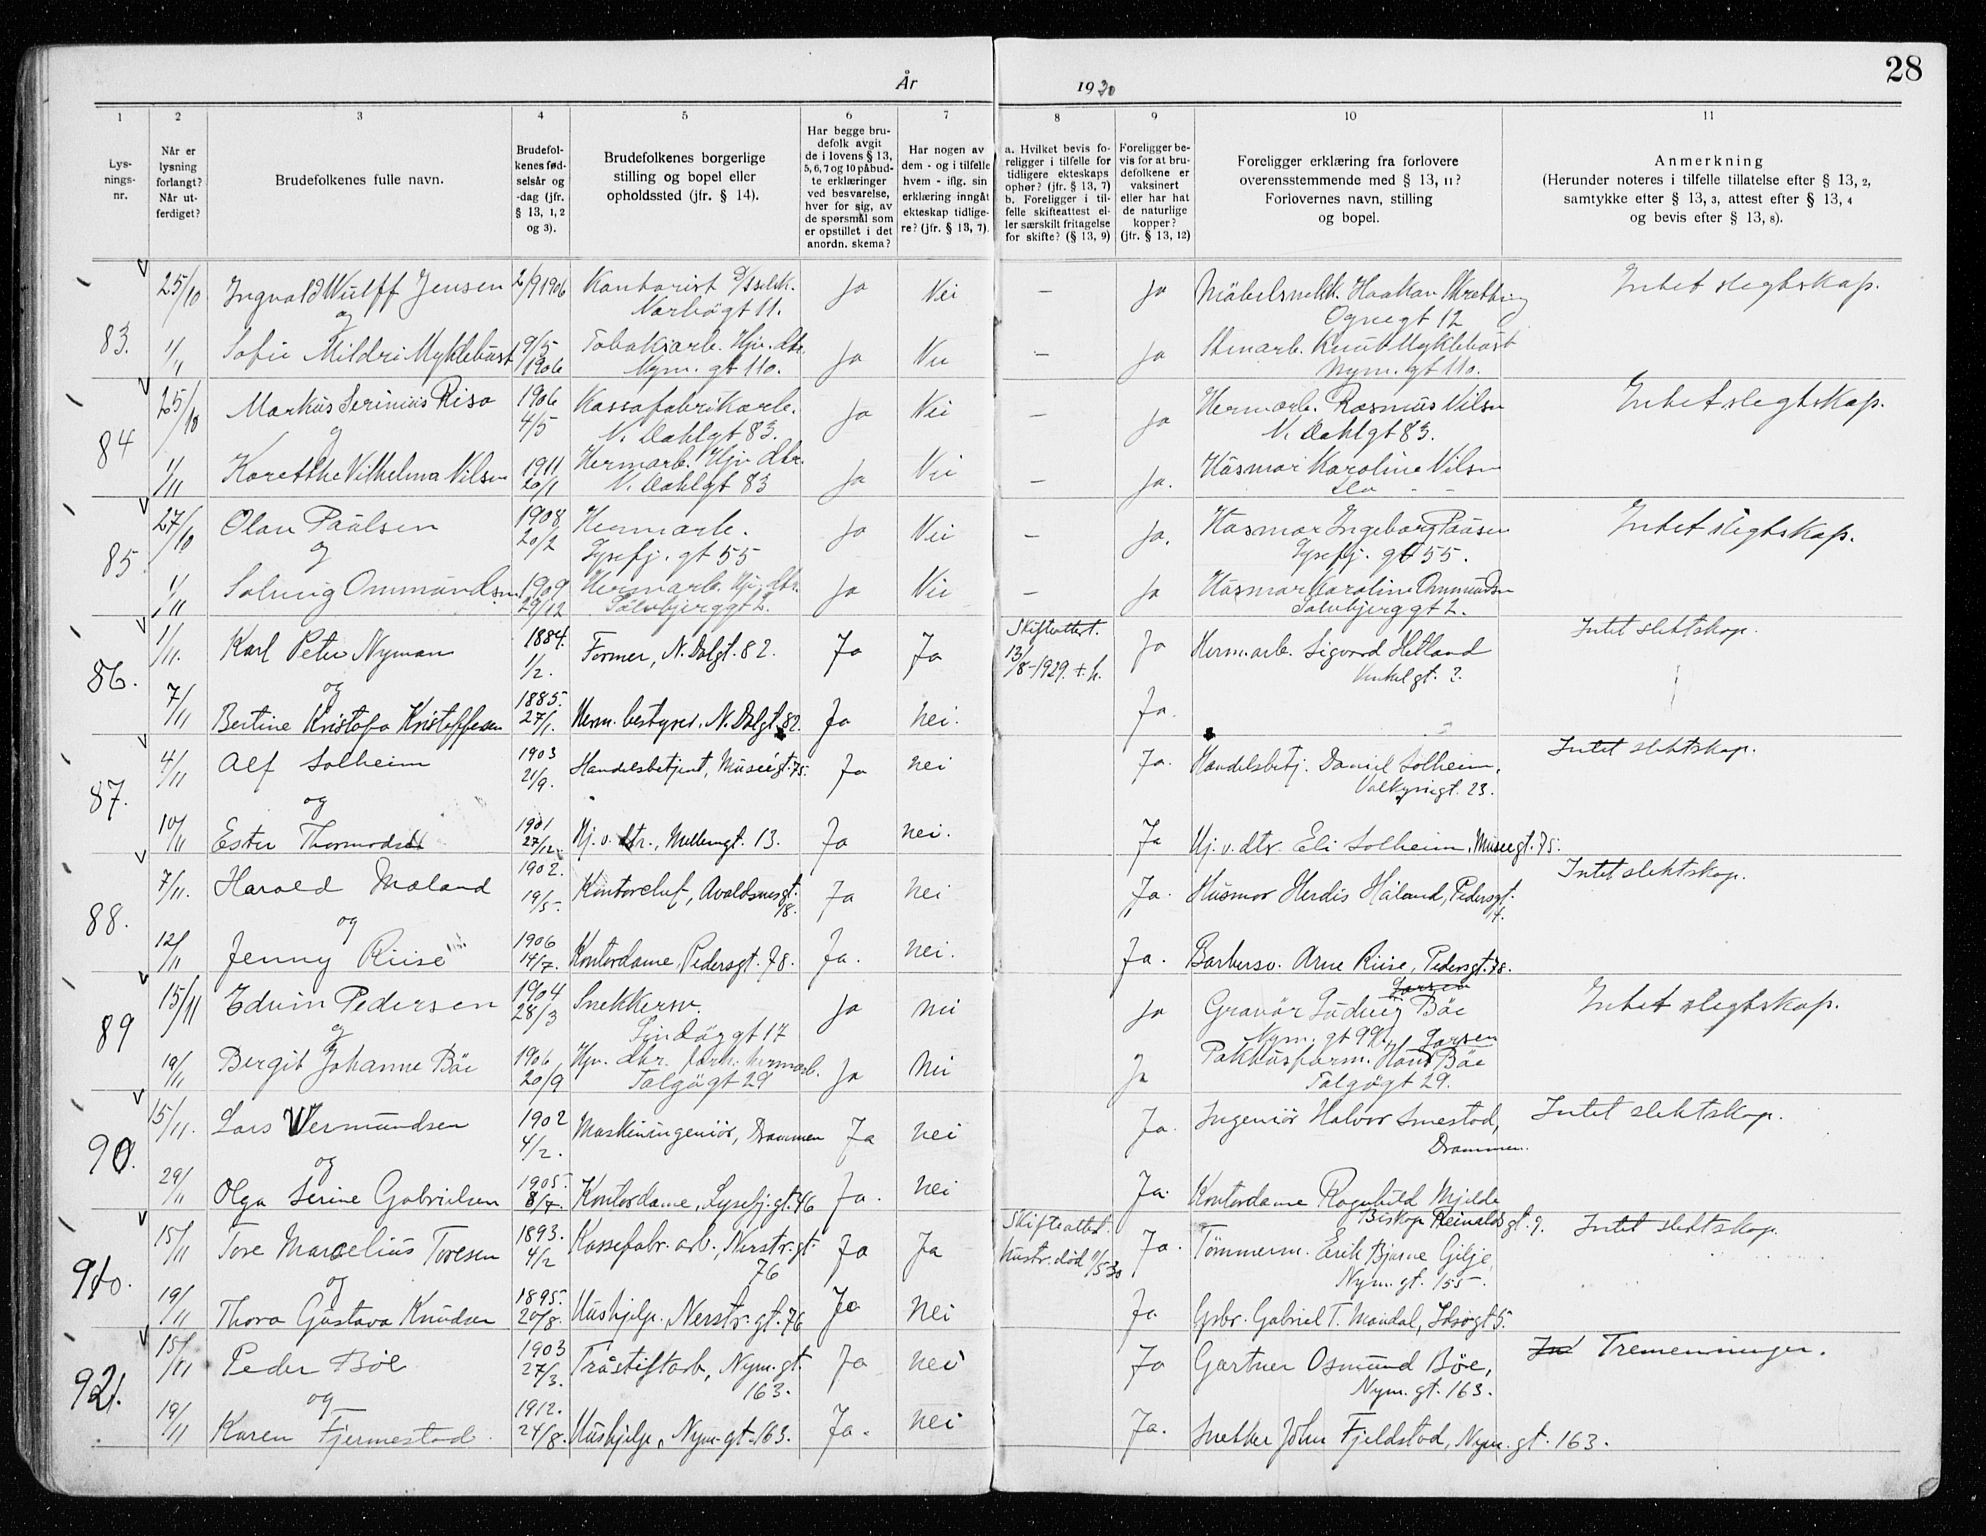 28
År 1930
1 2 3 4 5 6 7 8 9 10 11
Lys-
nings-
nr.
Når er
lysning
forlangt?
Når ut-
ferdiget?
Brudefolkenes fulle navn.
Brudefol-
kenes fød-
selsår og
-dag (jfr.
§ 13, 1, 2
og 3).
Brudefolkenes borgerlige
stilling og bopel eller
opholdssted (jfr. § 14).
Har begge bru-
defolk avgit
de i lovens § 13,
5, 6, 7 og 10 påbud-
te erklæringer
ved besvarelse,
hver for sig, av
de spørsmål som
er opstillet i det
anordn. skema?
Har nogen av
dem - og i tilfelle
hvem - iflg. sin
erklæring inngåt
ekteskap tidlige-
re? (jfr. § 13, 7).
a. Hvilket bevis fo-
religger i tilfelle for
tidligere ekteskaps
ophør? (jfr. § 13, 7)
b. Foreligger i til-
felle skifteattest el-
ler særskilt fritagelse
for skifte? (§ 13, 9)
Foreligger be-
vis for at bru-
defolkene er
vaksinert
eller har hat
de naturlige
kopper?
(jfr. § 13, 12)
Foreligger erklæring fra forlovere
overensstemmende med § 13, 11?
Forlovernes navn, stilling
og bopel.
Anmerkning
(Herunder noteres i tilfelle tillatelse efter § 13, 2,
samtykke efter § 13, 3, attest efter § 13, 4
og bevis efter § 13, 8).
83. 25/10 Ingvald Wulff Jensen 2/9 1906 Kontorist D/sselk. Ja Nei – Ja Møbelsnekk. Haakon Skretting Intet slegtskap.
og Norbøgt 11. Ognegt 12
1/11 Sofie Mildri Myklebust 9/5 1906 Tobaksarb. Hjv. dtr. Ja Nei – Ja Stenarb. Knut Myklebust
Nym. gt 110. Nym. gt 110.
84 25/10 Markus Serinius Risa 1906 4/5 Kassafabrikarb. Ja Nei – Ja Hermarb. Rasmus Nilsen Intet slegtskap.
og V. Dahlgt 83. V. Dahlgt 83.
1/11 Karethe Vilhelma Nilsen 1911 20/1 Hermarb. Hjv. dtr. Ja Nei – Ja. Husmor Karoline Nilsen
V. Dahlgt 83 Do - -
85 27/10 Olav Paulsen 1908 20/2 Hermarb. Ja Nei – Ja. Husmor Ingeborg Paulsen Intet slegtskap.
og Lysefj. gt 55 Lysefj. gt 55.
1/11 Solveig Ommundsen 1909 29/12 Hermarb. Hjv. dtr. Ja Nei – Ja Husmor Karoline Ommundsen
Sølvbjerggt 2. Sølvbjerggt 2.
86. 1/11. Karl Peter Nyman 1884. 1/2. Former, N. Dalgt. 82. Ja Ja Skifteattest. 13/8-1929 + h. Ja Herm.arb. Sigvard Hetland Intet slektskap.
og Vinkelgt. 2.
7/11 Bertine Kristofa Kristoffersen 1885. 27/1. Herm. bestyrer, N. Dalgt. 82. Ja Nei. Ja.
87. 4/11 Alf Solheim 1903 21/9. Handelsbetjent, Museigt. 75. Ja Nei Ja. Handelsbetj. Daniel Solheim, Intet slektskap.
og Valkyriegt. 23.
10/11 Ester Thormodsæt 1901 27/12. Hj. v. dtr., Mellemgt. 13. Ja Nei. Ja Hj. v. dtr. Eli Solheim, Museigt. 75.
88. 7/11. Harald Maland 1902. 19/5. Kontorchef, Avaldsnesgt. 8. Ja Nei Ja. Husmor Herdis Håland, Pedersgt. 4. Intet slektskap.
og
12/11 Jenny Riise 1906 14/7. Kontordame, Pedersgt. 78. Ja. Nei. Ja. Barbersv. Arne Riise, Pedersgt. 78.
89 15/11 Edvin Pedersen 1904 28/3 Snekkersv. Ja Nei Ja Gravør Ludvig Larsen Bøe Intet slegtskap.
og Lindøygt 17 Nym. gt 99.
19/11 Bergit Johanne Bøe 1906 20/9 Hjv. dtr. forh. hermarb. Ja Nei Ja Pakhusform. Hans Larsen Bøe
Talgøgt 29 Talgøgt 29.
90. 15/11. Lars Wermundsen 1902 4/2. Maskiningeniør, Drammen Ja Nei Ja. Ingeniør Halvor Smestad, Intet slektskap.
og Drammen.
29/11 Olga Serine Gabrielsen 1905. 8/7. Kontordame, Lysefj. gt. 46 Ja. Nei Ja. Kontordame Ragnhild Mjelde
Biskop Reinalds gt. 9.
91. 15/11 Tore Marselius Toresen 1893. 4/2 Kassefabr. arb., Nerstr. gt. Ja Ja Skifteattest. Ja. Tømmerm. Erik Bjarne Gilje, Intet slektskap.
og 76 hustr. død 11/5 30 Nym. gt. 155.
19/11 Thora Gustava Knudsen 1895. 20/8. Hushjelp, Nerstr. gt. 76 Ja Nei Ja Gsbr. Gabriel T. Mandal, Idsøgt 5.
92. 15/11 Peder Bøe 1903 27/3. Tråstiftarb, Nym. gt. Ja Nei Ja Gartner Osmund Bøe, Int Tremenninger.
og 163. Nym. gt. 163.
19/11 Karen Fjermestad. 1912. 24/8. Hushjelp, Nym. gt. 163. Ja. Nei Ja. Snekker John Fjeldstad, Nym. gt. 163.